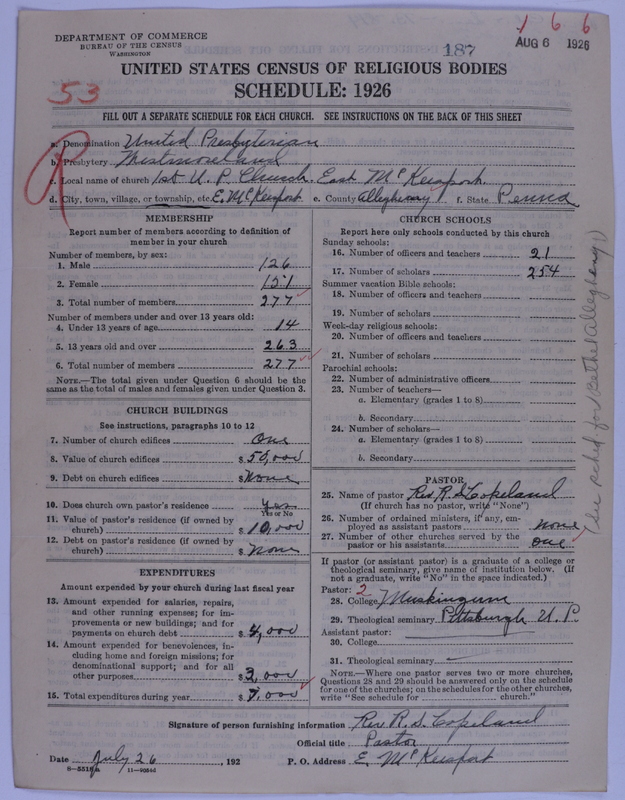 1 6 6
DEPARTMENT OF COMMERCE
BUREAU OF THE CENSUS
WASHINGTON
187
AUG 6 1926
UNITED STATES CENSUS OF RELIGIOUS BODIES
SCHEDULE: 1926
53
FILL OUT A SEPARATE SCHEDULE FOR EACH CHURCH. SEE INSTRUCTIONS ON THE BACK OF THIS SHEET
R
a. Denomination United Presbyterian
b. Presbytery Westmoreland
c. Local name of church 1st U. P. Church. East McKeesport.
d. City, town, village, or township, etc. E. McKeesport e. County Allegheny f. State Penna
MEMBERSHIP
Report number of members according to definition of
member in your church
Number of members, by sex:
1. Male 126
2. Female 151
3. Total number of members 277
Number of members under and over 13 years old:
4. Under 13 years of age 14
5. 13 years old and over 263
6. Total number of members 277
NOTE.—The total given under Question 6 should be the
same as the total of males and females given under Question 3.
CHURCH BUILDINGS
See instructions, paragraphs 10 to 12
7. Number of church edifices One
8. Value of church edifices $ 50,000
9. Debt on church edifices $ None
10. Does church own pastor's residence? Yes
Yes or No
11. Value of pastor's residence (if owned by
church) $ 10,000
12. Debt on pastor's residence (if owned by
church) $ None
EXPENDITURES
Amount expended by your church during last fiscal year
13. Amount expended for salaries, repairs,
and other running expenses; for im-
provements or new buildings; and for
payments on church debt $ 4,000
14. Amount expended for benevolences, in-
cluding home and foreign missions; for
denominational support; and for all
other purposes $ 3,000
15. Total expenditures during year $ 7,000
CHURCH SCHOOLS
Report here only schools conducted by this church
Sunday schools:
16. Number of officers and teachers 21
17. Number of scholars 254
Summer vacation Bible schools:
18. Number of officers and teachers
19. Number of scholars
Week-day religious schools:
20. Number of officers and teachers
21. Number of scholars
Parochial schools:
22. Number of administrative officers
23. Number of teachers—
a. Elementary (grades 1 to 8)
b. Secondary
24. Number of scholars—
a. Elementary (grades 1 to 8)
b. Secondary
PASTOR
25. Name of pastor Rev. R. S. Copeland
(If church has no pastor, write "None")
26. Number of ordained ministers, if any, em-
ployed as assistant pastors None
27. Number of other churches served by the
pastor or his assistants One
If pastor (or assistant pastor) is a graduate of a college or
theological seminary, give name of institution below. (If
not a graduate, write "No" in the space indicated.)
Pastor: 2
28. College Muskingum
29. Theological seminary Pittsburgh U. P.
Assistant pastor:
30. College
31. Theological seminary
NOTE.—Where one pastor serves two or more churches,
Questions 28 and 29 should be answered only on the schedule
for one of the churches; on the schedules for the other churches,
write "See schedule for ............ church."
(See sched for Bethel Allegheny)
Signature of person furnishing information Rev. R. S. Copeland
Official title Pastor
Date July 26, 192 P. O. Address E. McKeesport